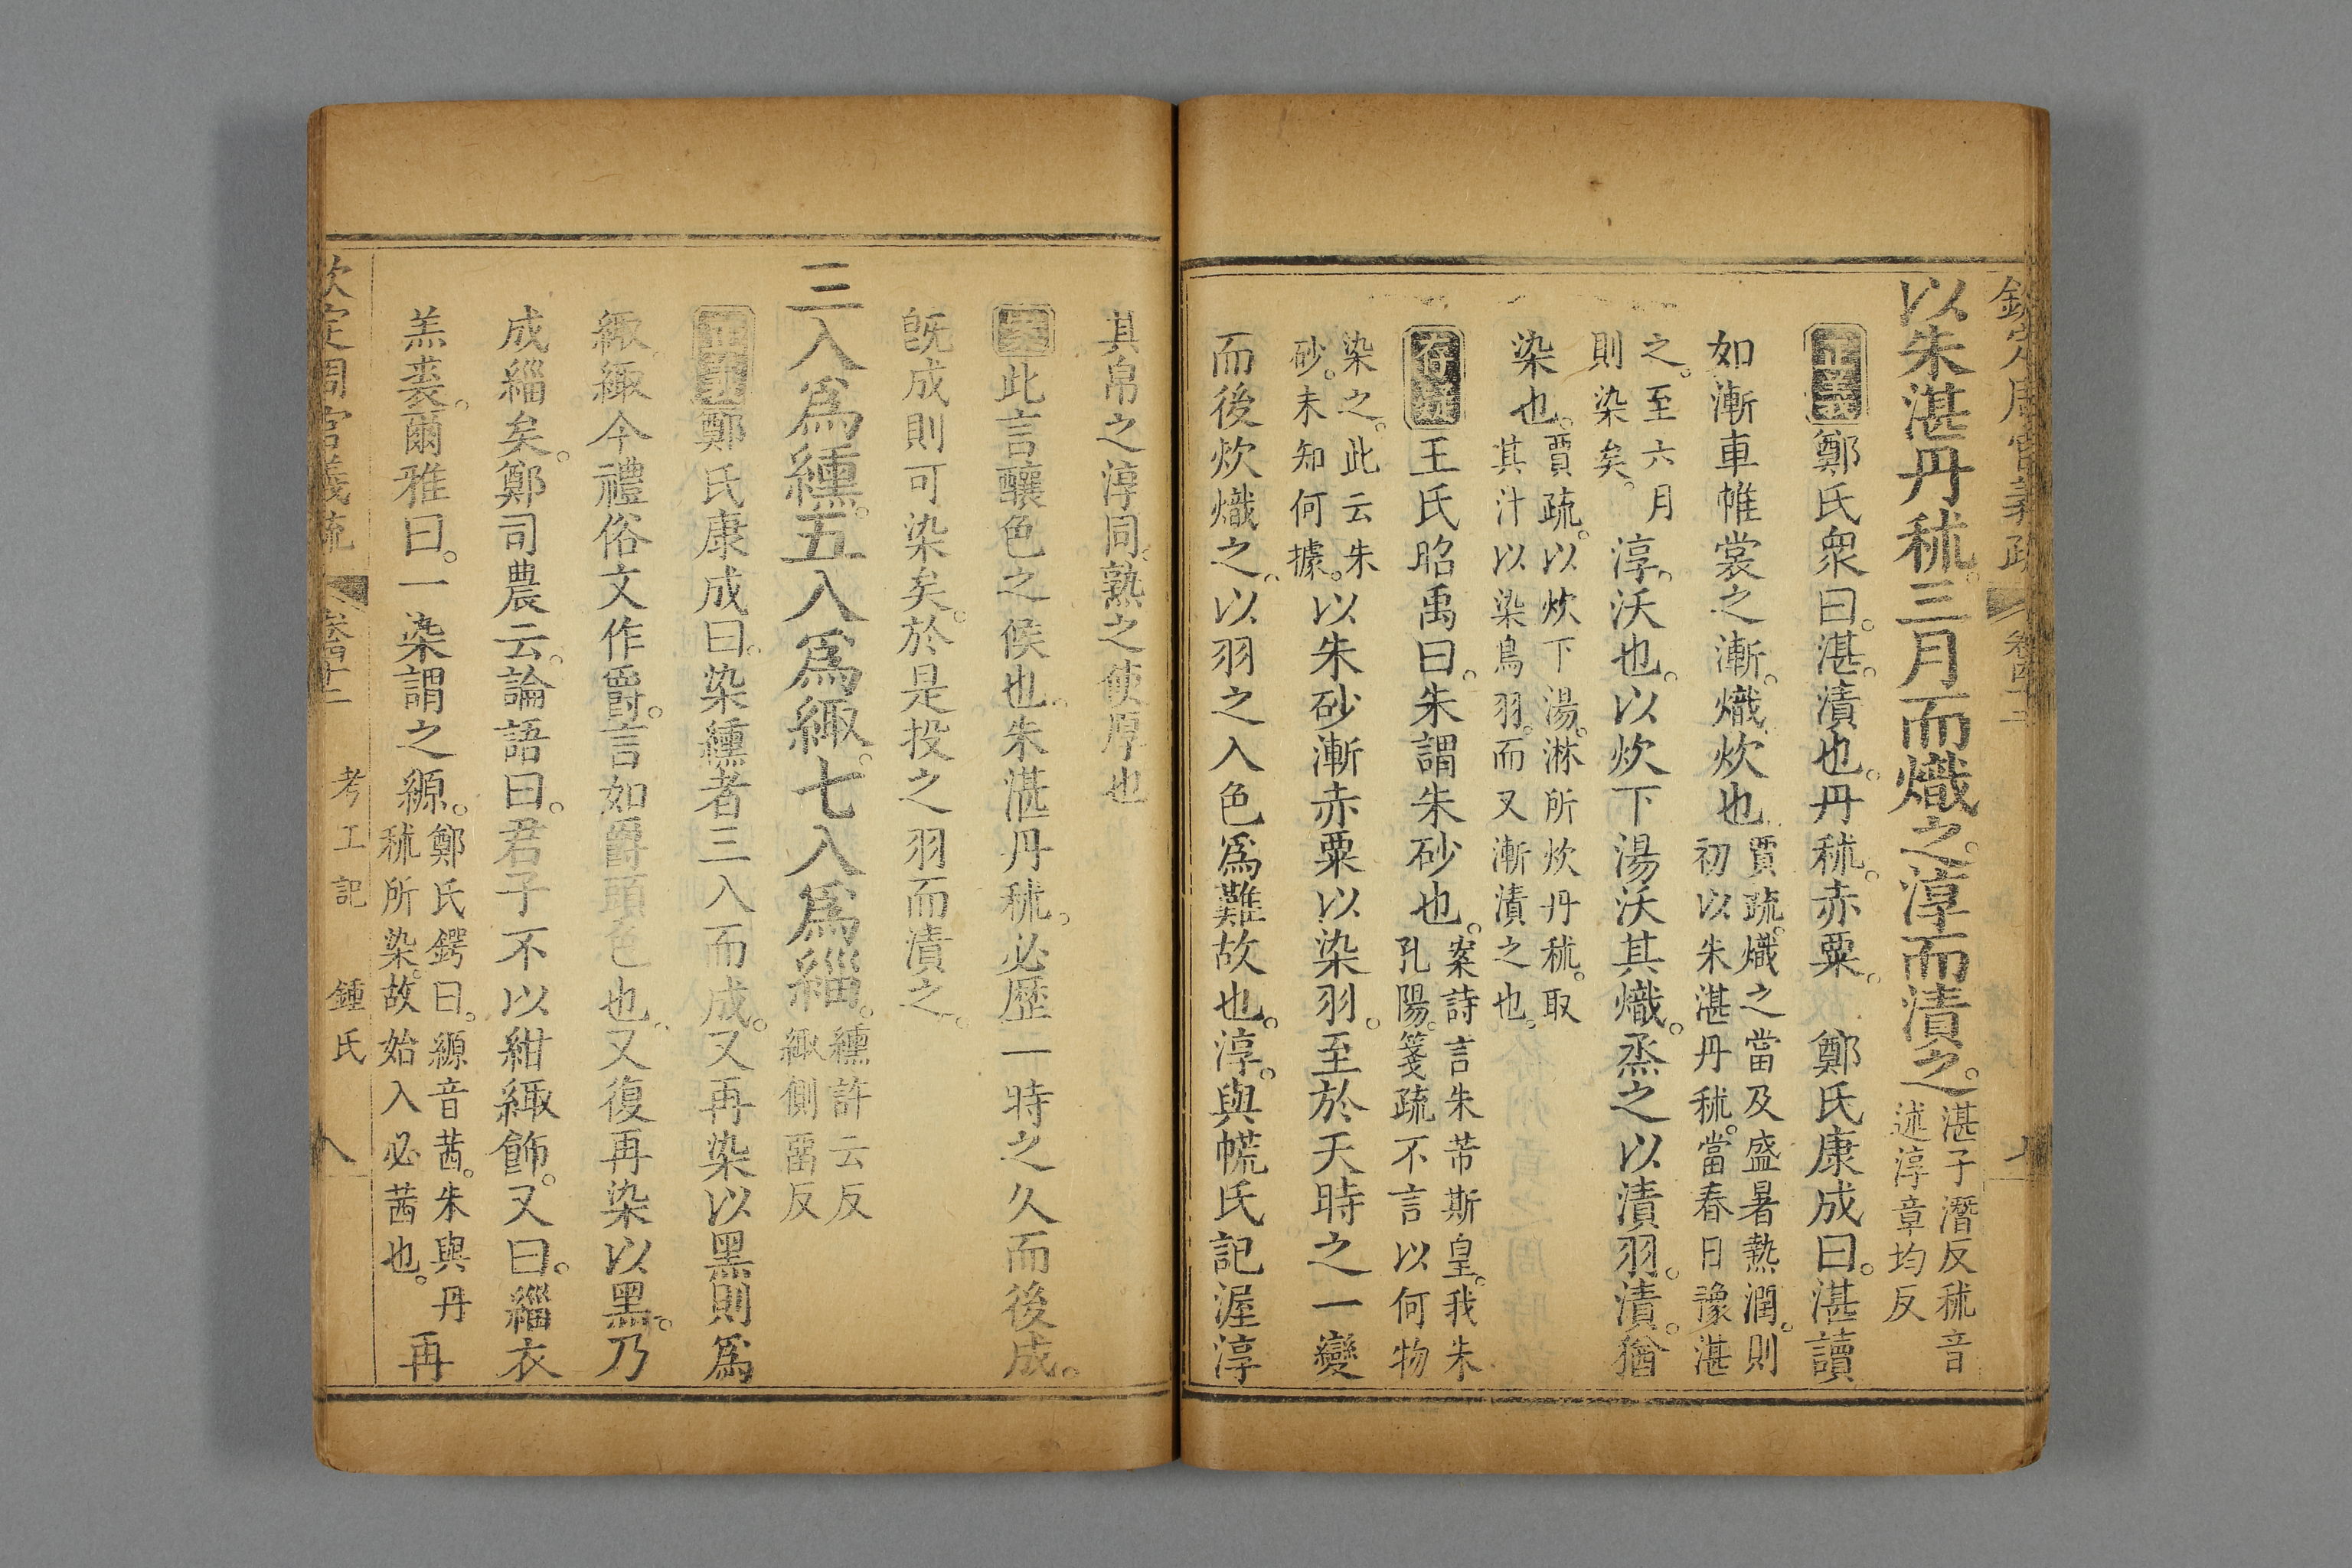 欽定周官義疏 卷四十二
以朱湛丹秫。三月而熾之。淳而漬之。湛子潛反秫音述淳章均反
正義鄭氏衆曰。湛。漬也。丹秫。赤粟。 鄭氏康成曰。湛讀
如漸車帷裳之漸。熾。炊也。賈疏。熾之當及盛暑熱潤。則初以朱湛丹秫。當春日豫湛
之。至六月則染矣。淳。沃也。以炊下湯沃其熾。烝之以漬羽。漬。猶
染也。賈疏。以炊下湯。淋所炊丹秫。取其汁以染鳥羽。而又漸漬之也。
存疑王氏昭禹曰。朱謂朱砂也。案詩言朱芾斯皇。我朱孔陽。箋疏不言以何物
染之。此云朱砂。未知何據。以朱砂漸赤粟以染羽。至於天時之一變
而後炊熾之。以羽之入色爲難故也。淳。與㡛氏記渥淳
其帛之淳同。熟之使厚也
案此言釀色之候也。朱湛丹秫。必歷一時之久而後成。
旣成則可染矣。於是投之羽而漬之。
三入爲纁。五入爲緅。七入爲緇。纁許云反緅側畱反
正義鄭氏康成曰。染纁者三入而成。又再染以黑則爲
緅緅今禮俗文作爵。言如爵頭色也。又復再染以黑。乃
成緇矣。鄭司農云。論語曰。君子不以紺緅飾。又曰。緇衣
羔裘。爾雅曰。一染謂之縓。鄭氏鍔曰。縓音茜。朱與丹秫所染。故始入必茜也。再
欽定周官義疏 卷四十二 考工記 鍾氏 八